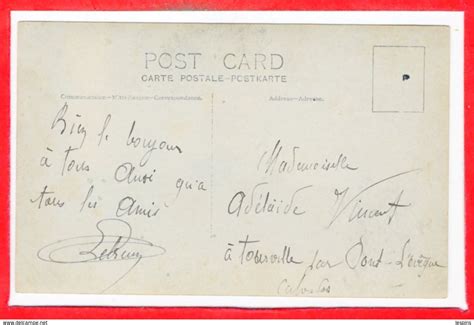 POST CARD
CARTE POSTALE-POSTKARTE
Communication-Mitteilung-Correspondance.
Address-Adresse.
P
Bien le bonjour
à tous Ausi qu'a
tous les Amis
Mademoiselle
Adélaïde Vincent
à Tourville par Pont-L'évêque
Calvados